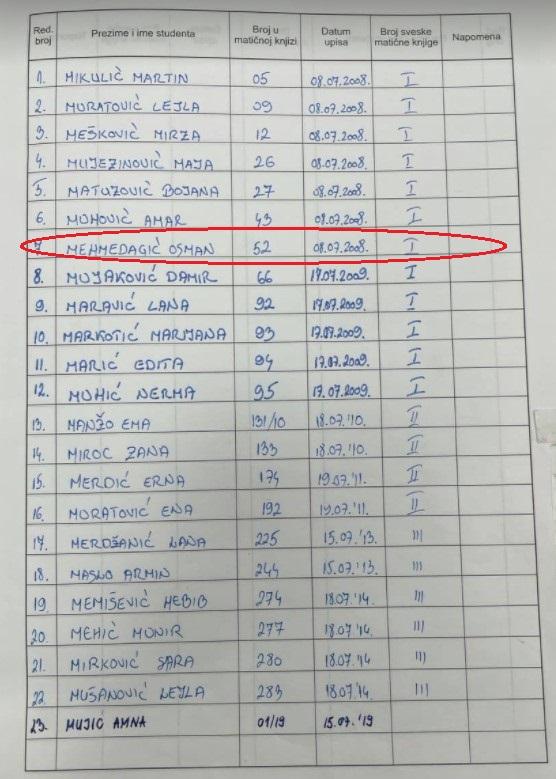 Red. broj Prezime i ime studenta Broj u matičnoj knjizi Datum upisa Broj sveske matične knjige Napomena
1. MIKULIĆ MARTIN 05 08.07.2008. I
2. MURATOVIĆ LEJLA 09 08.07.2008. I
3. MEŠKOVIĆ MIRZA 12 08.07.2008. I
4. MUJEZINOVIĆ MAJA 26 08.07.2008. I
5. MATUZOVIĆ BOJANA 27 08.07.2008. I
6. MUHOVIĆ AMAR 43 08.07.2008. I
7 MEHMEDAGIĆ OSMAN 52 08.07.2008. I
8. MUJAKOVIĆ DAMIR 66 17.07.2009. I
9. MARAVIĆ LANA 92 17.07.2009. I
10. MARKOTIĆ MARIJANA 93 17.07.2009. I
11. MARIĆ EDITA 94 17.07.2009. I
12. MUHIĆ NERMA 95 17.07.2009. I
13. MANŽO EMA 131/10 18.07.'10. II
14. MIROC ZANA 133 18.07.'10. II
15. MERDIĆ ERNA 174 19.07.'11. II
16. MORATOVIĆ ENA 192 19.07.'11. II
17. MERDŽANIĆ LANA 225 15.07.'13. III
18. MASLO ARMIN 244 15.07.'13. III
19. MEMIŠEVIĆ HEBIB 274 18.07.'14. III
20. MEHIĆ MUNIR 277 18.07.'14. III
21. MIRKOVIĆ SARA 280 18.07.'14 III
22. MUŠANOVIĆ LEJLA 283 18.07.'14. III
23. MUJIĆ AMNA 01/19 15.07.'19